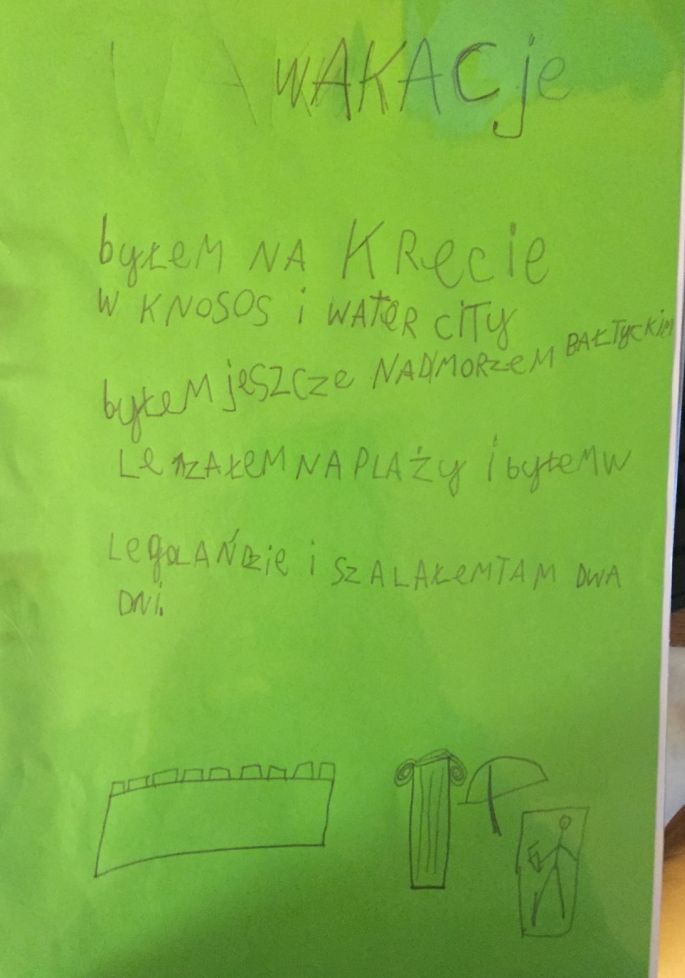 WAKACje
byŁeM NA KRęcie
W KNOSOS i WATeR CiTY
byŁeM jeSZCZe NADMORZeM BAŁTyCKiM
LeżAŁeM NA PLAŻy i byŁeM W
LegoLAŃDZie i SZALAŁeM TAM DWA
DNi.